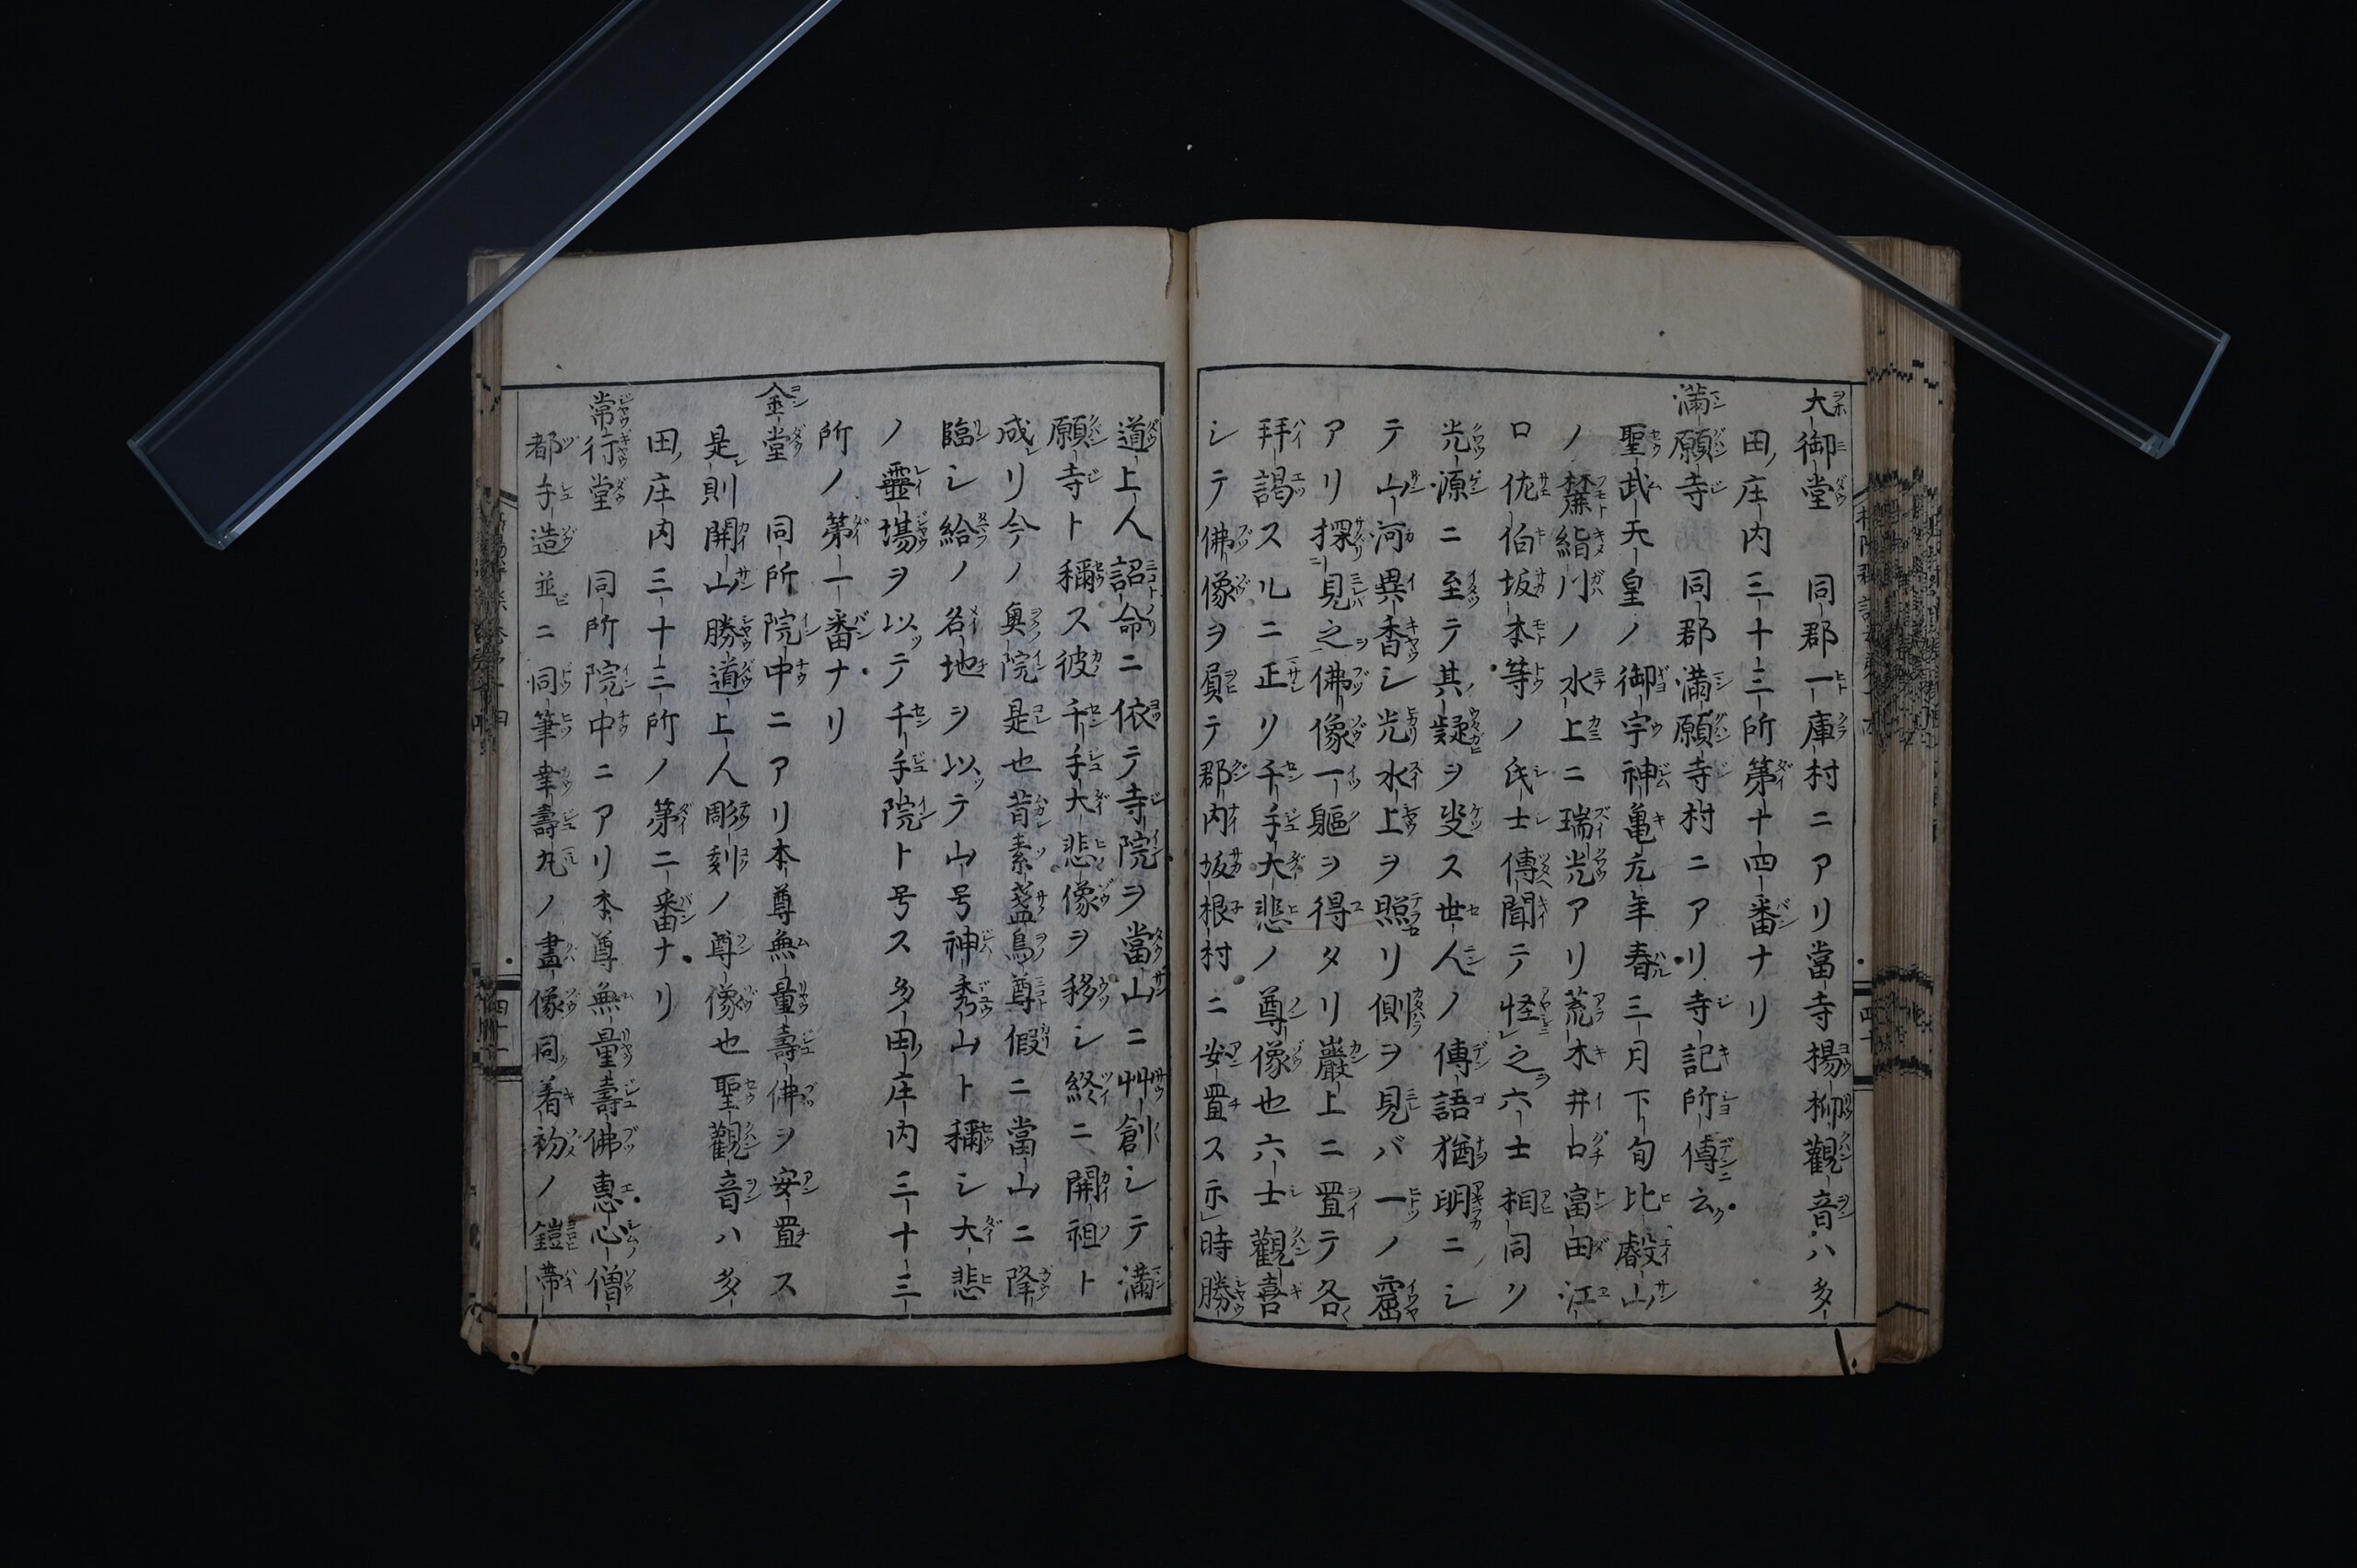 大御堂 同郡一庫村ニアリ當寺楊柳觀音ハ多
田ノ庄内三十三所第十四番ナリ
滿願寺 同郡滿願寺村ニアリ寺記所傳云
聖武天皇ノ御宇神亀元年春三月下旬比叡山
ノ麓絈川ノ水上ニ瑞光アリ荒木井口富田江
口佐伯坂本等ノ氏士傳聞テ怪之六士相同ク
光源ニ至テ其疑ヲ决ス世人ノ傳語猶明ニシ
テ山河異香シ光水上ヲ照リ側ヲ見バ一ノ窟
アリ探見之佛像一軀ヲ得タリ巖上ニ置テ各
拜謁スルニ正リ千手大悲ノ尊像也六士觀喜
シテ佛像ヲ負テ郡内坂根村ニ安置ス于時勝
道上人詔命ニ依テ寺院ヲ當山ニ艸創シテ滿
願寺ト稱ス彼千手大悲像ヲ移シ終ニ開祖ト
成リ今ノ奥院是也昔素盞烏尊假ニ當山ニ降
臨シ給ノ名地ヲ以テ山号神秀山ト稱シ大悲
ノ靈場ヲ以テ千手院ト号ス多田庄内三十三
所ノ第一番ナリ
金堂 同所院中ニアリ本尊無量壽佛ヲ安置ス
是則開山勝道上人彫刻ノ尊像也聖觀音ハ多
田ノ庄内三十三所ノ第二番ナリ
常行堂 同所院中ニアリ本尊無量壽佛惠心僧
都手造並ニ同筆幸壽丸ノ畫像同着初ノ鎧帶
四十一